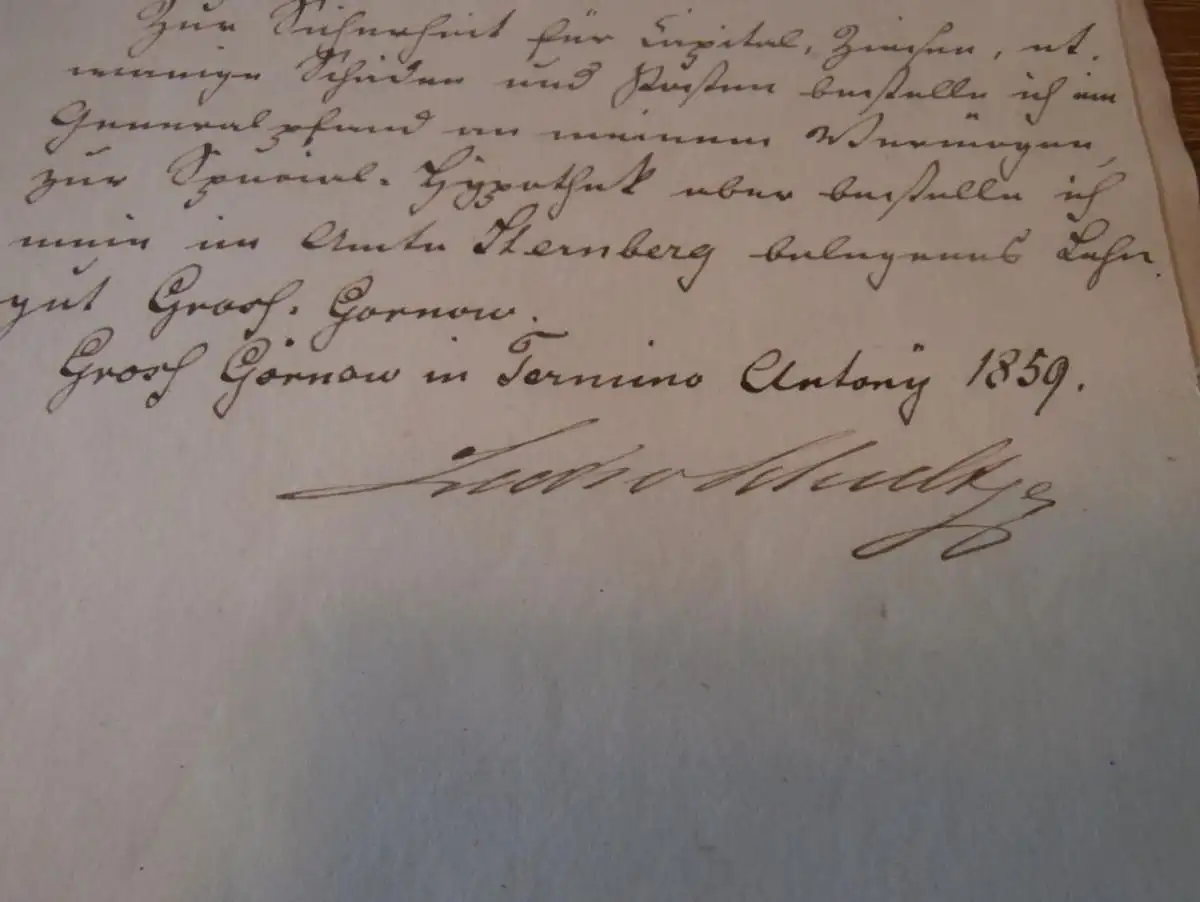 Zur Sicherheit für Capital, Zinsen, et-
wanige Schäden und Kosten bestelle ich ein
Generalpfand an meinem Vermögen,
zur Special-Hypothek aber bestelle ich
mein im Amte Sternberg belegenes Lehn-
gut Gross-Gornow.
Gross Gornow in Termino Antonÿ 1859.
Schultze